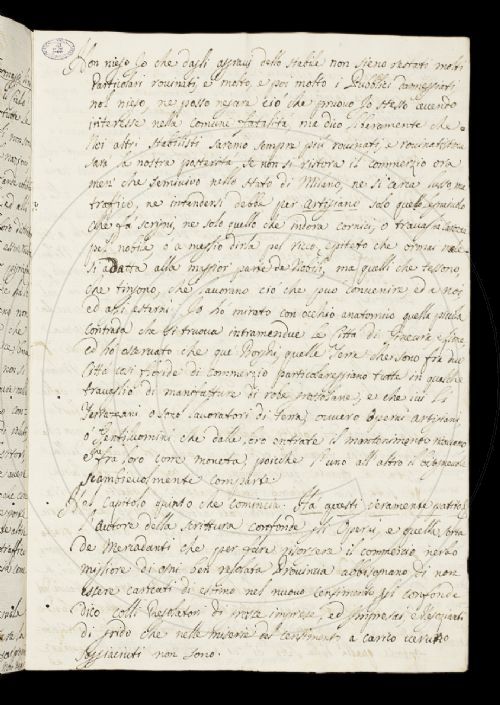 Non niego Io che dagli aggravj dello stabile non sieno restati molti
Particolari rovinati, e molto, e poi molto i Pubblici danneggiati
non niego, ne posso negare ciò che pruovo Io stesso avendo
interesse nella comune fatalità, ma dico liberamente che
noi altri Stabilisti saremo sempre più rovinati, e
sarà la nostra posterità, se non si ristora il commerzio ora
mai che feminino nello Stato di Milano, ne si cerca lusso ma
traffico, ne intendersi debba per Artigiano solo quello
che fà scrigni, ne solo quello che indora cornici, o travaglia
per nobile o a meglio dirla pel ricco, epiteto che ormai
si adatta alla maggior parte de Nobili, ma quelli che tessono,
che tingono, che lavorano ciò che può convenire e a noi
ed agli esterni. Io ho mirato con occhio anatomico quella piccola
contrada che si truova intramendue le Città di Ginevra e
ed ho osservato che que' Borghi, quelle Terre che sono fra due
Città così floride di commerzio particolareggiano tutte in qualche
travaglio di manufatture di robe, e che ivi li
Terrazzani o sono lavoratori di terra, ovvero Operaj artigiani,
o Gentiluomini che dalle loro entrate il mantenimento
e fra loro corre moneta, poiche l'uno all'altro il bisognevole
scambievolmente comparte
Nel Capitolo quinto che comincia. Fra questi veramente
l'Autore della scrittura confonde gli Operaj, e quella sorta
de Mercadanti che per fare risorgere il commerzio nerbo
migliore di ogni ben regolata Provincia abbisognano di non
essere caricati di estimo nel nuovo censimento gli confonde
dico colli Negoziatori di grosse imprese, ed Impresarj, e
di grido che nelle miserie del censimento a carico
soggiaciuti non sono.